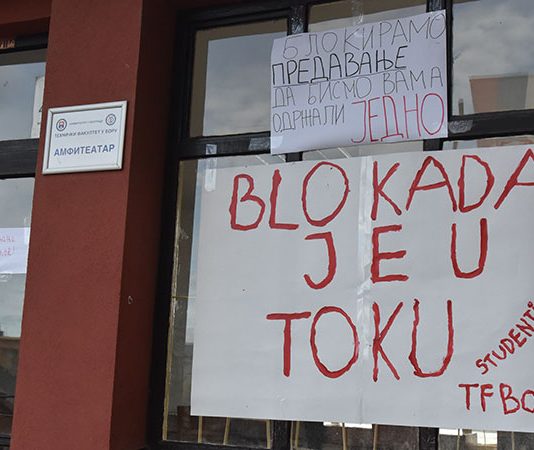 УНИВЕРЗИТЕТ У БЕОГРАДУ
ТЕХНИЧКИ ФАКУЛТЕТ У БОРУ
АМФИТЕАТАР
БЛОКИРАМО
ПРЕДАВАЊЕ
ДА БИСМО ВАМА
ОДРЖАЛИ ЈЕДНО
BLOKADA
JE U
TOKU
STUDENTI
TFBO